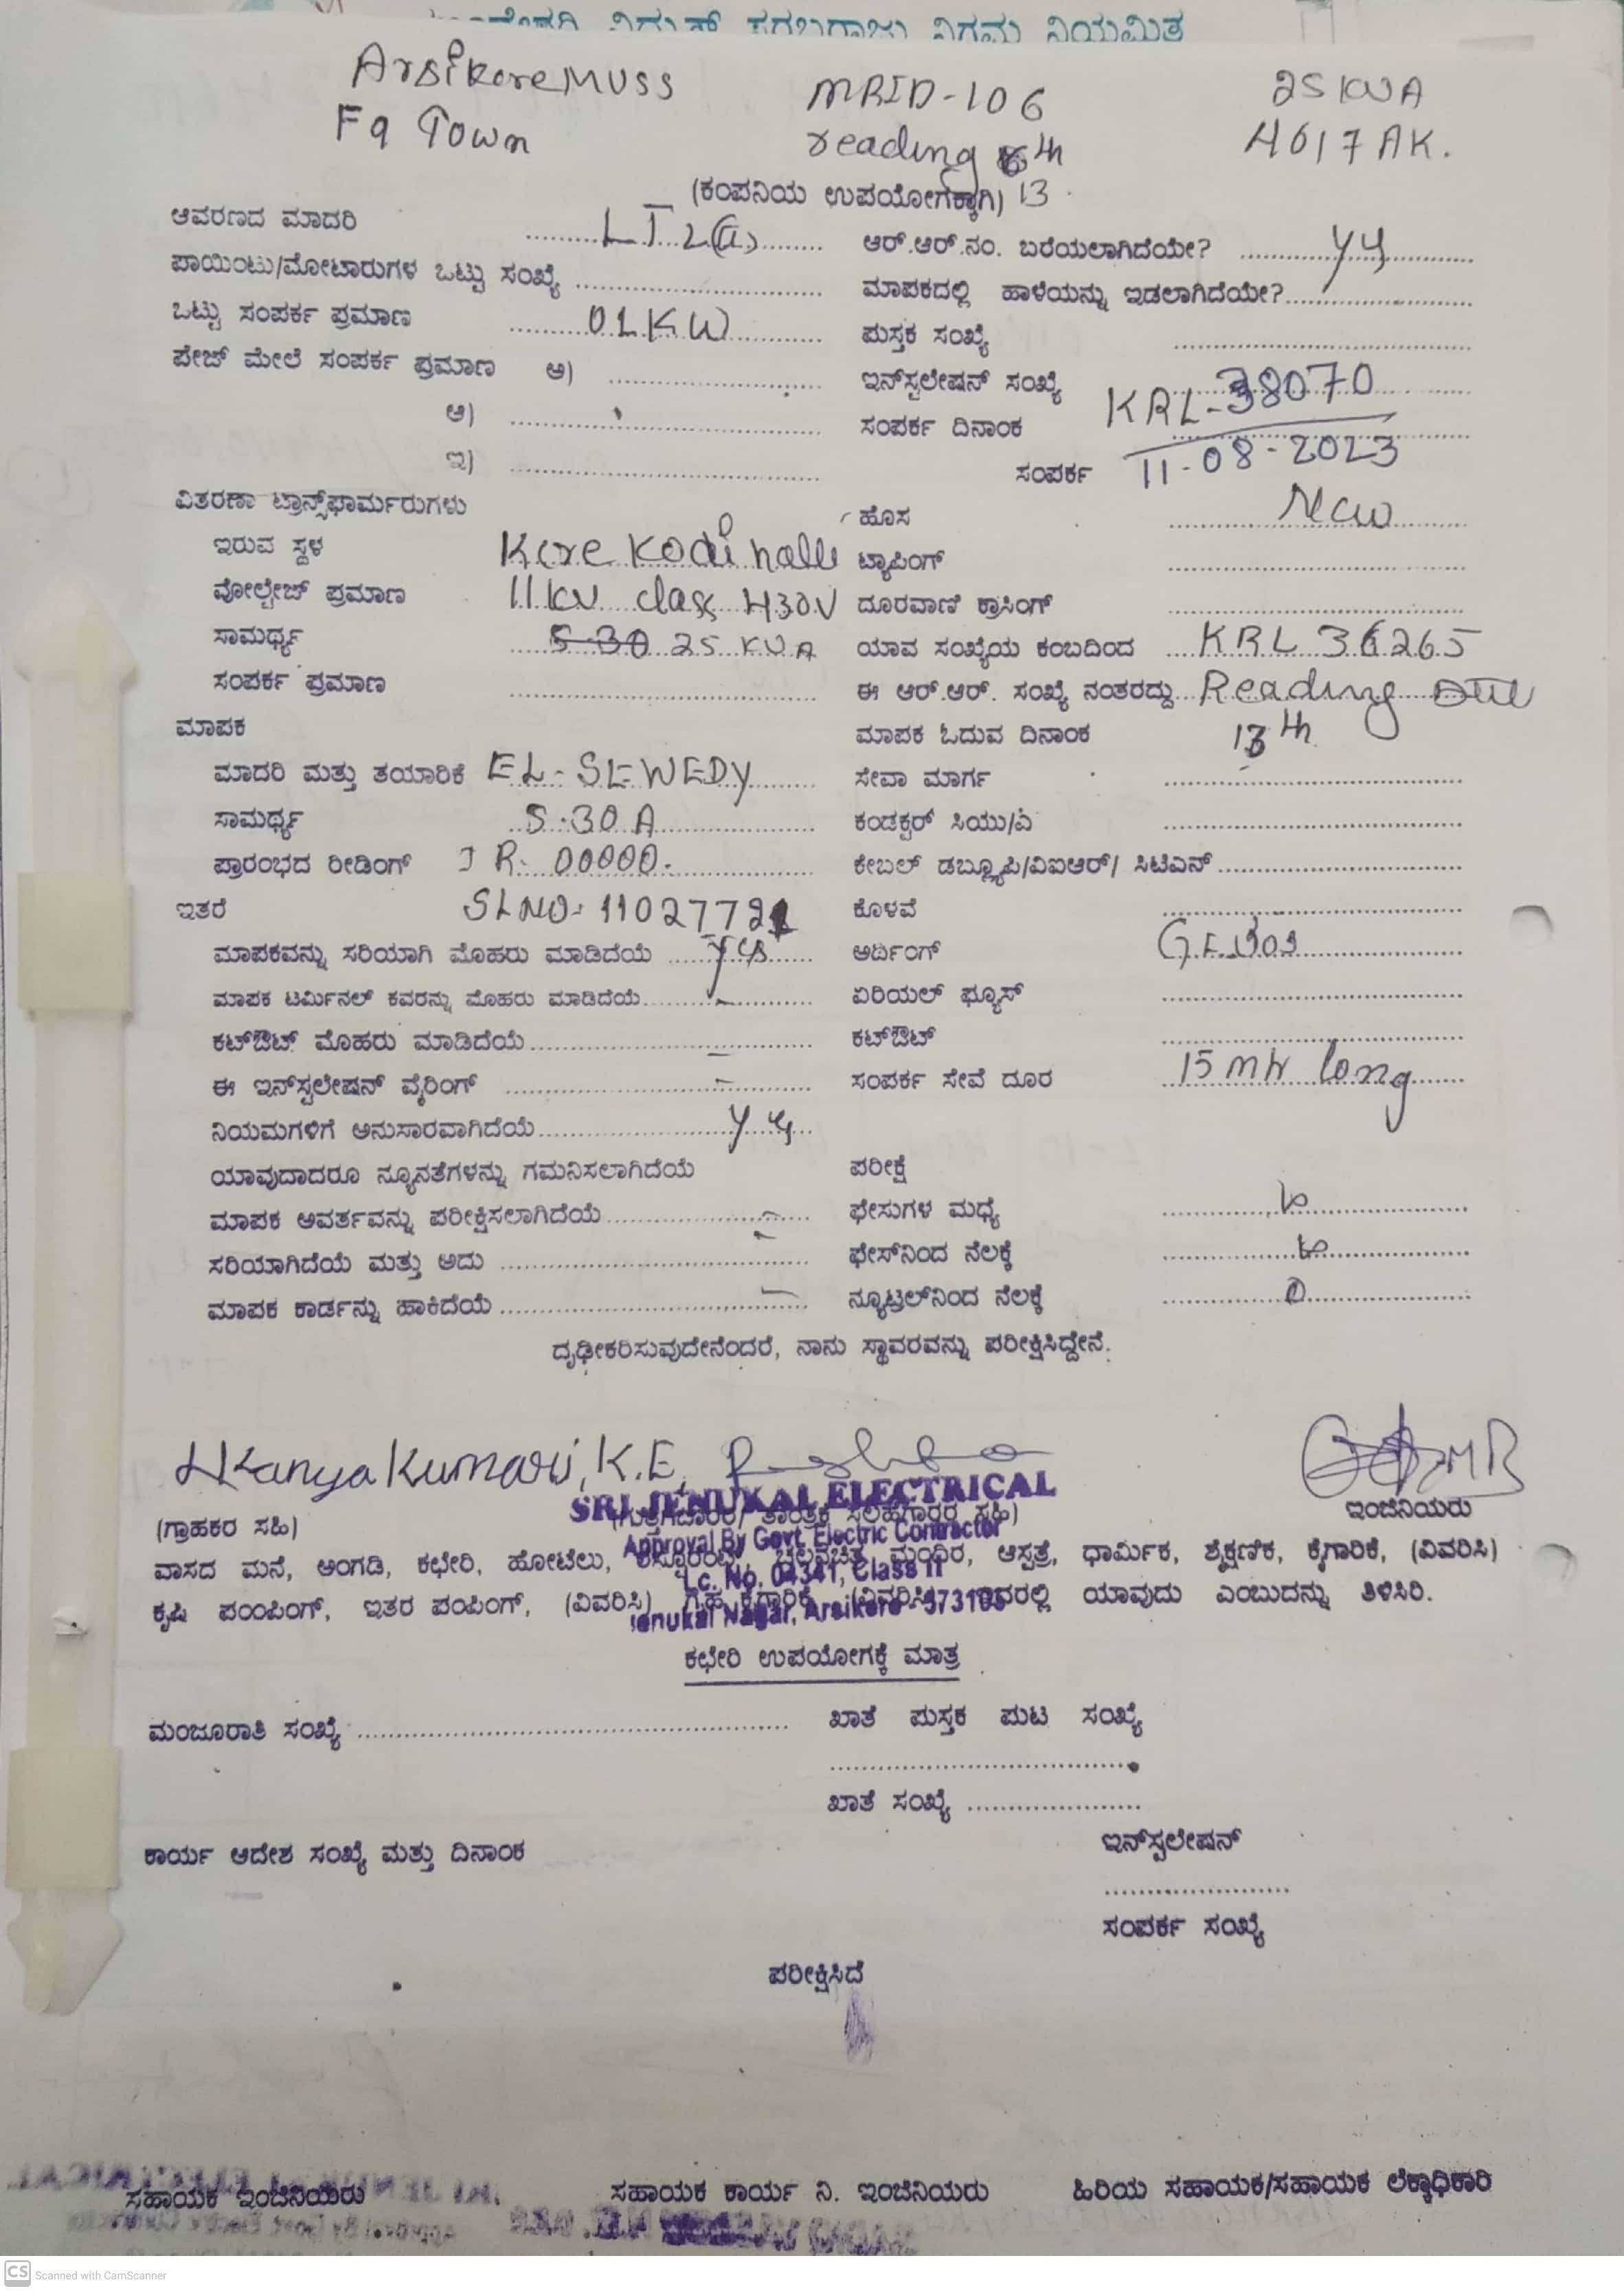 ನಿಗಮ ನಿಯಮಿತ
Arsikere MUSS MRID-106 25 KVA
F9 Town reading th 4017 AK.
(ಕಂಪನಿಯ ಉಪಯೋಗಕ್ಕಾಗಿ) 13
ಆವರಣದ ಮಾದರಿ LT 2(a) ಆರ್.ಆರ್.ನಂ. ಬರೆಯಲಾಗಿದೆಯೇ?
ಪಾಯಿಂಟು/ಮೋಟಾರುಗಳ ಒಟ್ಟು ಸಂಖ್ಯೆ ಮಾಪಕದಲ್ಲಿ ಹಾಳೆಯನ್ನು ಇಡಲಾಗಿದೆಯೇ?
ಒಟ್ಟು ಸಂಪರ್ಕ ಪ್ರಮಾಣ 01 KW ಪುಸ್ತಕ ಸಂಖ್ಯೆ
ಪೇಜ್ ಮೇಲೆ ಸಂಪರ್ಕ ಪ್ರಮಾಣ ಅ) ಇನ್‌ಸ್ಟಲೇಷನ್ ಸಂಖ್ಯೆ KRL-38070
ಆ) ಸಂಪರ್ಕ ದಿನಾಂಕ 11-08-2023
ಇ) ಸಂಪರ್ಕ
ವಿತರಣಾ ಟ್ರಾನ್ಸ್‌ಫಾರ್ಮರುಗಳು ಹೊಸ New
ಇರುವ ಸ್ಥಳ Kere Kodi halli ಟ್ಯಾಪಿಂಗ್
ವೋಲ್ಟೇಜ್ ಪ್ರಮಾಣ 11 KV class 430V ದೂರವಾಣಿ ಕ್ರಾಸಿಂಗ್
ಸಾಮರ್ಥ್ಯ 5-30 25 KVA ಯಾವ ಸಂಖ್ಯೆಯ ಕಂಬದಿಂದ KRL 36265
ಸಂಪರ್ಕ ಪ್ರಮಾಣ ಈ ಆರ್.ಆರ್. ಸಂಖ್ಯೆ ನಂತರದ್ದು Reading
ಮಾಪಕ ಮಾಪಕ ಓದುವ ದಿನಾಂಕ 13th
ಮಾದರಿ ಮತ್ತು ತಯಾರಿಕೆ EL-SEWEDY ಸೇವಾ ಮಾರ್ಗ
ಸಾಮರ್ಥ್ಯ 5-30 A ಕಂಡಕ್ಟರ್ ಸಿಯು/ಎ
ಪ್ರಾರಂಭದ ರೀಡಿಂಗ್ I R: 00000. ಕೇಬಲ್ ಡಬ್ಲ್ಯೂಪಿ/ವಿಐಆರ್/ ಸಿಟಿಎನ್
ಇತರೆ SL NO: 11027721 ಕೊಳವೆ
ಮಾಪಕವನ್ನು ಸರಿಯಾಗಿ ಮೊಹರು ಮಾಡಿದೆಯೆ yes ಅರ್ಥಿಂಗ್
ಮಾಪಕ ಟರ್ಮಿನಲ್ ಕವರನ್ನು ಮೊಹರು ಮಾಡಿದೆಯೆ ಏರಿಯಲ್ ಫ್ಯೂಸ್
ಕಟ್‌ಔಟ್ ಮೊಹರು ಮಾಡಿದೆಯೆ ಕಟ್‌ಔಟ್
ಈ ಇನ್‌ಸ್ಟಲೇಷನ್ ವೈರಿಂಗ್ ಸಂಪರ್ಕ ಸೇವೆ ದೂರ 15 mtr long
ನಿಯಮಗಳಿಗೆ ಅನುಸಾರವಾಗಿದೆಯೆ
ಯಾವುದಾದರೂ ನ್ಯೂನತೆಗಳನ್ನು ಗಮನಿಸಲಾಗಿದೆಯೆ ಪರೀಕ್ಷೆ
ಮಾಪಕ ಆವರ್ತವನ್ನು ಪರೀಕ್ಷಿಸಲಾಗಿದೆಯೆ ಫೇಸುಗಳ ಮಧ್ಯೆ
ಸರಿಯಾಗಿದೆಯೆ ಮತ್ತು ಅದು ಫೇಸ್‌ನಿಂದ ನೆಲಕ್ಕೆ
ಮಾಪಕ ಕಾರ್ಡನ್ನು ಹಾಕಿದೆಯೆ ನ್ಯೂಟ್ರಲ್‌ನಿಂದ ನೆಲಕ್ಕೆ 0
ದೃಢೀಕರಿಸುವುದೇನೆಂದರೆ, ನಾನು ಸ್ಥಾವರವನ್ನು ಪರೀಕ್ಷಿಸಿದ್ದೇನೆ.
Kanya Kumari, K.E,
SRI JENUKAL ELECTRICAL
(ಗ್ರಾಹಕರ ಸಹಿ) (ಗುತ್ತಿಗೆದಾರರ/ ತಾಂತ್ರಿಕ ಸಲಹಗಾರರ ಸಹಿ) ಇಂಜಿನಿಯರು
Approval By Govt. Electric Contractor
ವಾಸದ ಮನೆ, ಅಂಗಡಿ, ಕಛೇರಿ, ಹೋಟೆಲು, ಚಲನಚಿತ್ರ ಮಂಧಿರ, ಆಸ್ಪತ್ರೆ, ಧಾರ್ಮಿಕ, ಶೈಕ್ಷಣಿಕ, ಕೈಗಾರಿಕೆ, (ವಿವರಿಸಿ)
Lc. No. 04341, Class II
ಕೃಷಿ ಪಂಂಪಿಂಗ್, ಇತರ ಪಂಪಿಂಗ್, (ವಿವರಿಸಿ) ಗೃಹ ಕೈಗಾರಿಕೆ (ವಿವರಿಸಿ) ಇದರಲ್ಲಿ ಯಾವುದು ಎಂಬುದನ್ನು ತಿಳಿಸಿರಿ.
Jenukal Nagar, Arsikere - 573103
ಕಛೇರಿ ಉಪಯೋಗಕ್ಕೆ ಮಾತ್ರ
ಮಂಜೂರಾತಿ ಸಂಖ್ಯೆ ಖಾತೆ ಪುಸ್ತಕ ಪುಟ ಸಂಖ್ಯೆ
ಖಾತೆ ಸಂಖ್ಯೆ
ಕಾರ್ಯ ಆದೇಶ ಸಂಖ್ಯೆ ಮತ್ತು ದಿನಾಂಕ ಇನ್‌ಸ್ಟಲೇಷನ್
ಸಂಪರ್ಕ ಸಂಖ್ಯೆ
ಪರೀಕ್ಷಿಸಿದೆ
ಸಹಾಯಕ ಇಂಜಿನಿಯರು ಸಹಾಯಕ ಕಾರ್ಯ ನಿ. ಇಂಜಿನಿಯರು ಹಿರಿಯ ಸಹಾಯಕ/ಸಹಾಯಕ ಲೆಕ್ಕಾಧಿಕಾರಿ
CS Scanned with CamScanner